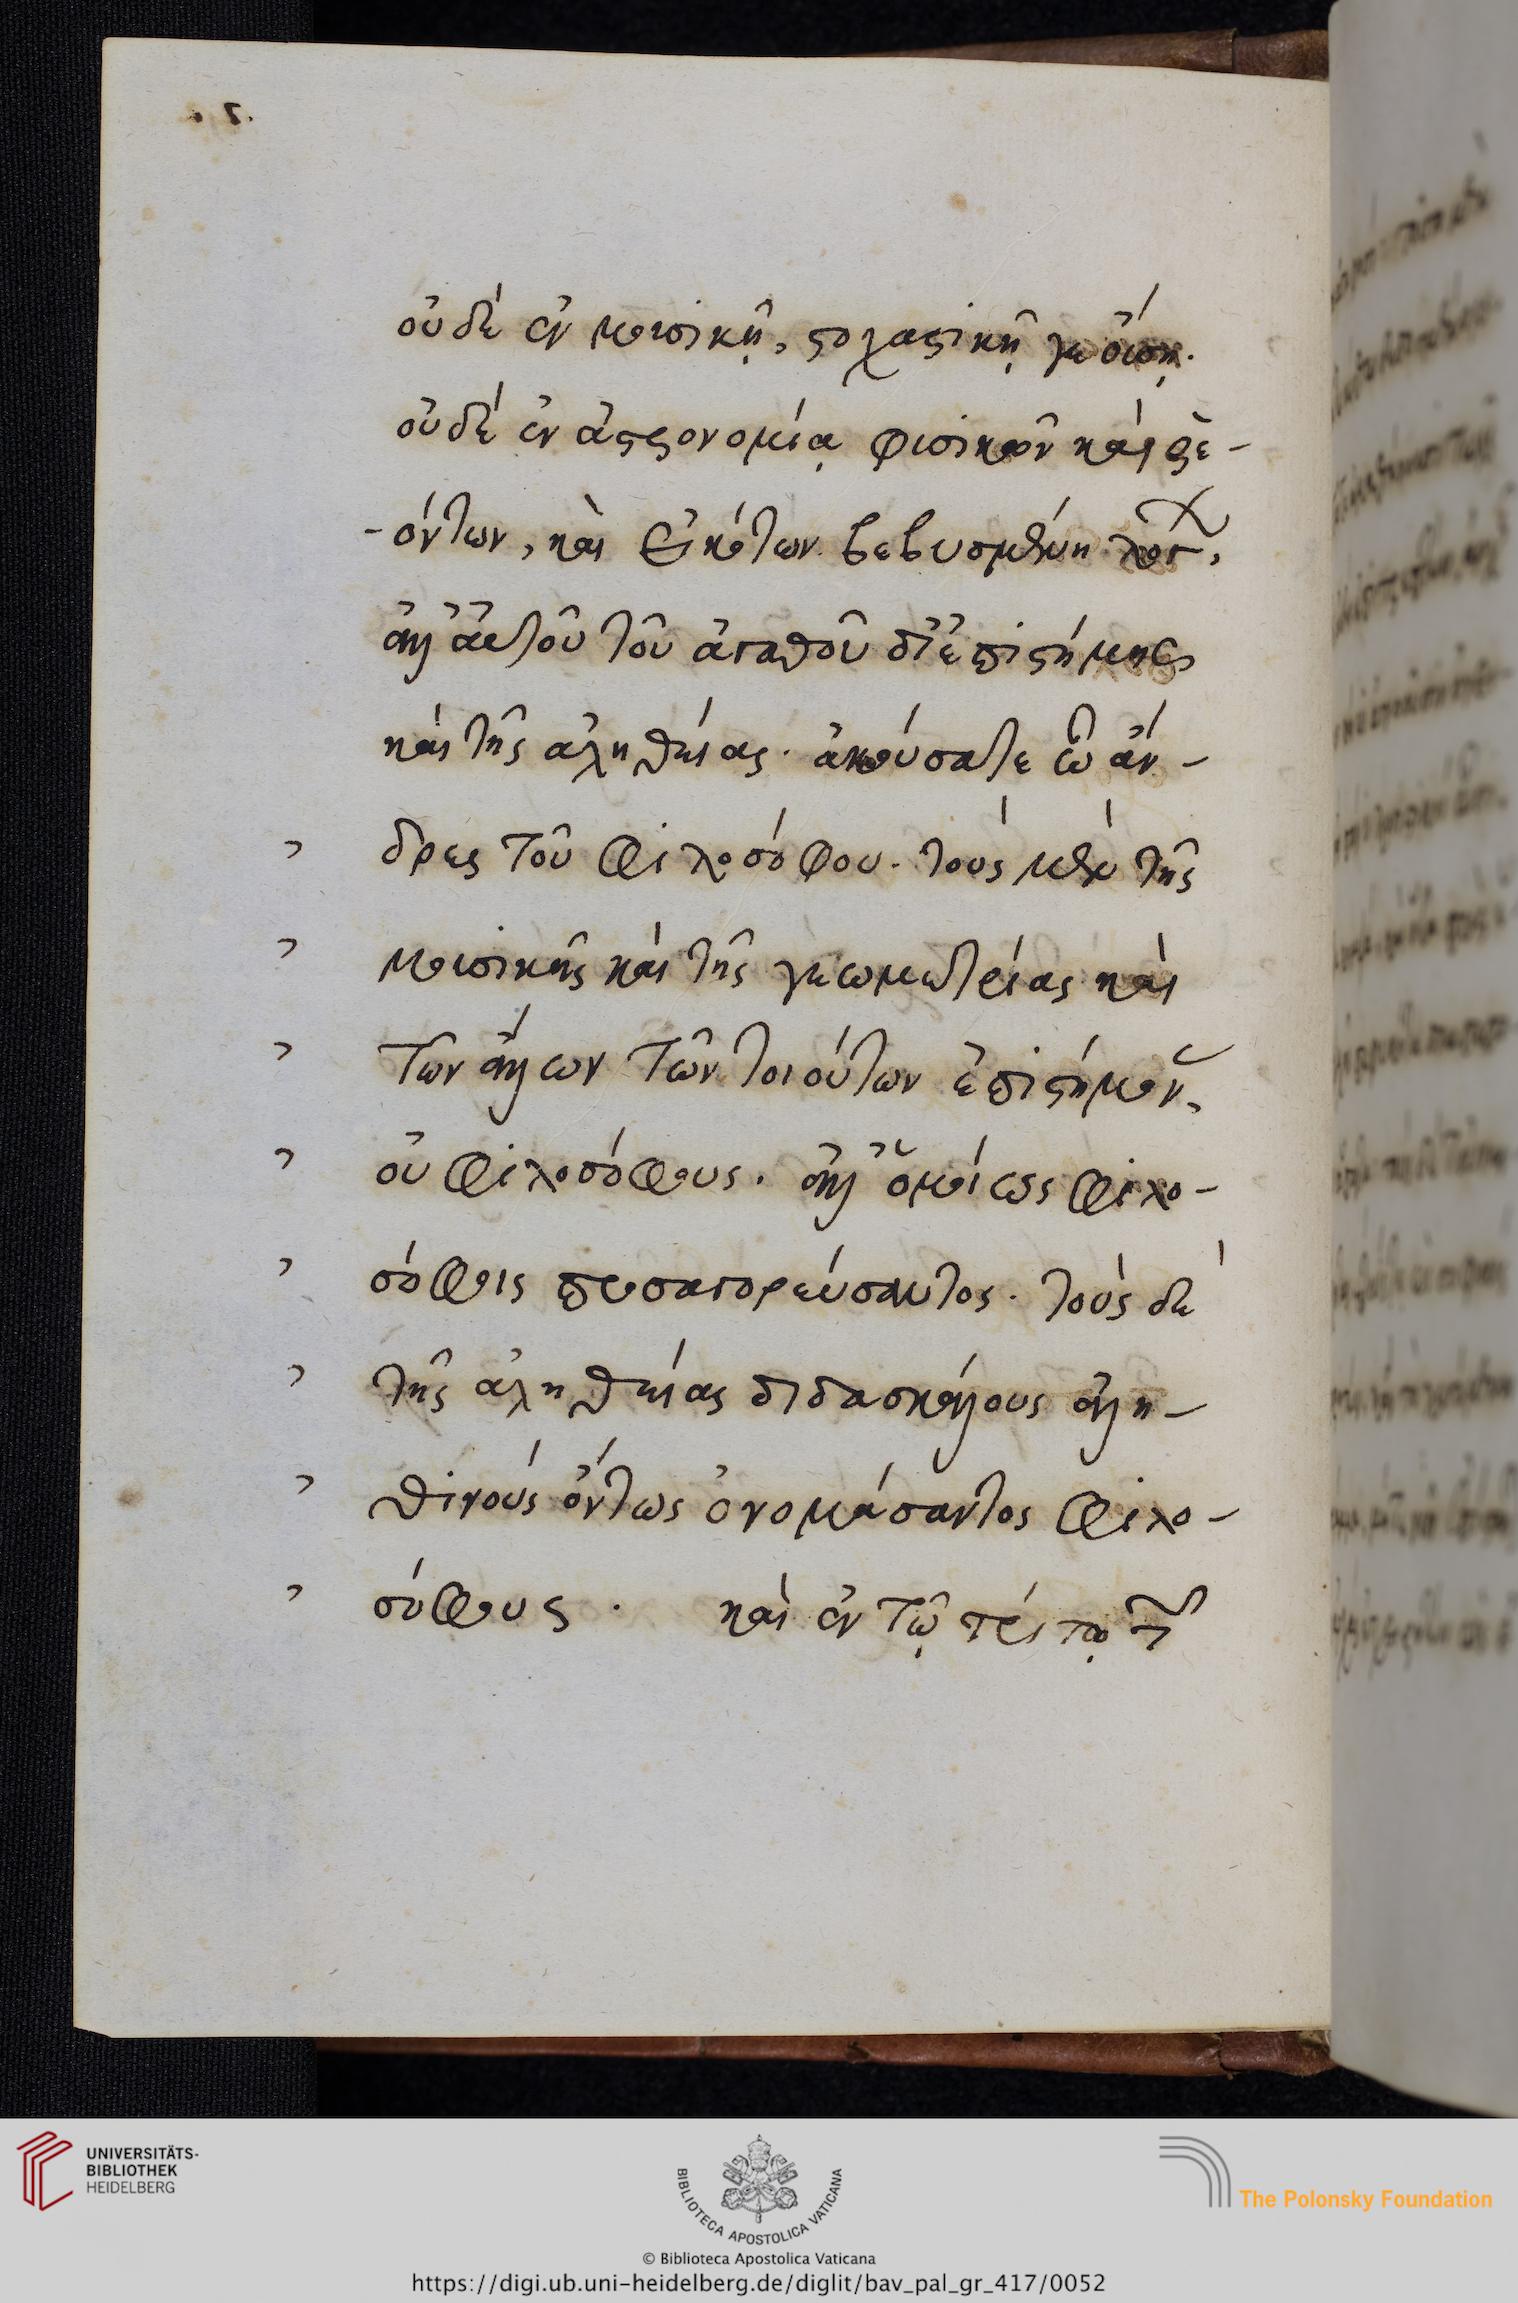 . 7 .
οὐδὲ ἐν μουσικῇ, στοχαστικῇ γε οὔσῃ.
οὐδὲ ἐν ἀστρονομίᾳ φυσικῶν καὶ ῥε-
-όντων, καὶ εἰκότων βεβυσμένῃ λόγ,
ἀλλ' αὐτοῦ τοῦ ἀγαθοῦ δι' ἐπιστήμης
καὶ τῆς ἀληθείας. ἀκούσατε ὦ ἄν-
δρες τοῦ φιλοσόφου. τοὺς μὲν τῆς
μουσικῆς καὶ τῆς γεωμετρίας καὶ
τῶν ἄλλων τῶν τοιούτων ἐπιστήμον,
οὐ φιλοσόφους. ἀλλ' ὁμοίως φιλο-
σόφοις προσαγορεύσαντος. τοὺς δὲ
τῆς ἀληθείας διδασκάλους ἀλη-
θινοὺς ὄντως ὀνομάσαντος φιλο-
σόφους. καὶ ἐν τῷ τρίτῳ τῶν
UNIVERSITÄTS-
BIBLIOTHEK
HEIDELBERG
BIBLIOTECA APOSTOLICA VATICANA
The Polonsky Foundation
© Biblioteca Apostolica Vaticana
https://digi.ub.uni-heidelberg.de/diglit/bav_pal_gr_417/0052